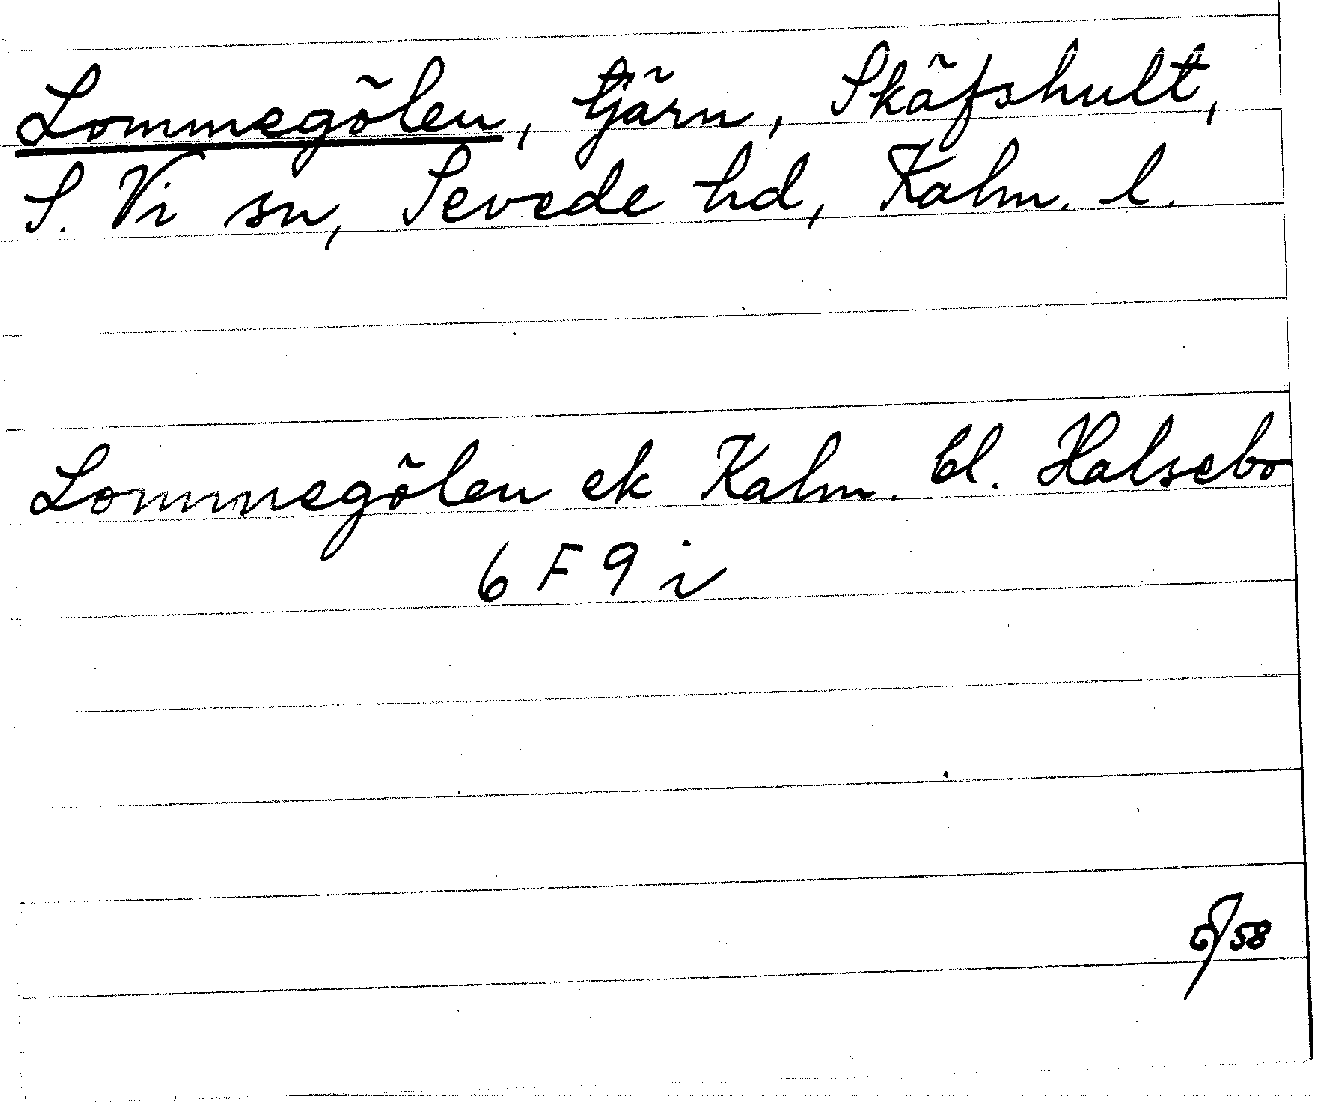 Lommegölen, tjärn, Skäfshult,
S. Vi sn, Sevede hd, Kalm. l.
Lommegölen ek Kalm. bl. Halsebo
6 F 9 i
58